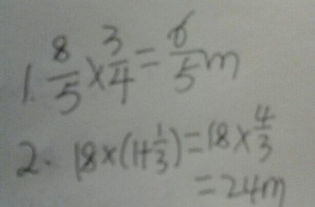 1. 8/5 × 3/4 = 6/5 m
2. 18×(1+1/3)=18×4/3
=24m